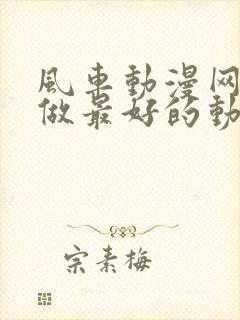 風車動漫网
做最好的動
宗素梅